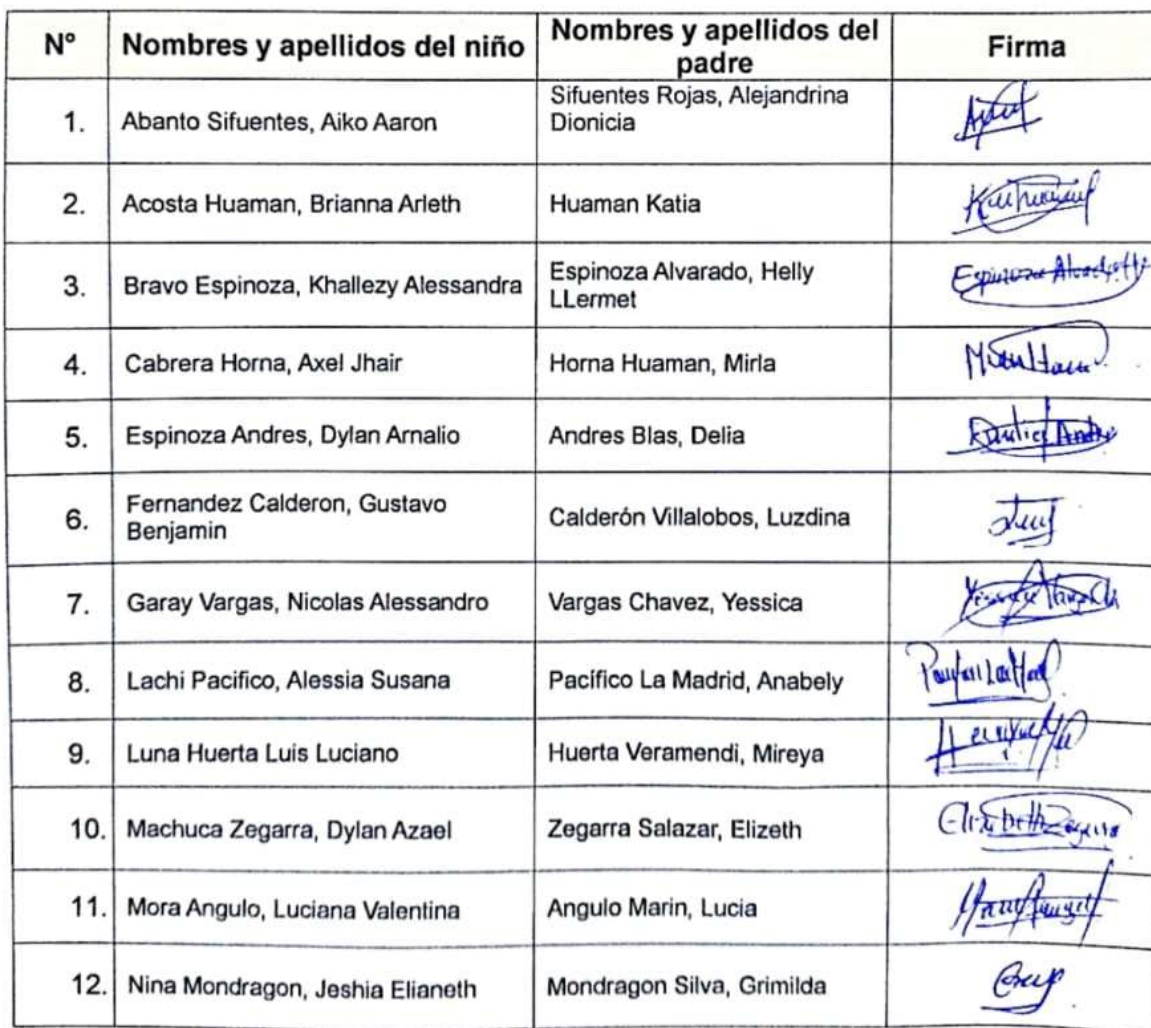 N° Nombres y apellidos del niño Nombres y apellidos del padre Firma
1. Abanto Sifuentes, Aiko Aaron Sifuentes Rojas, Alejandrina
Dionicia
2. Acosta Huaman, Brianna Arleth Huaman Katia
3. Bravo Espinoza, Khallezy Alessandra Espinoza Alvarado, Helly
LLermet
4. Cabrera Horna, Axel Jhair Horna Huaman, Mirla
5. Espinoza Andres, Dylan Arnalio Andres Blas, Delia
6. Fernandez Calderon, Gustavo
Benjamin Calderón Villalobos, Luzdina
7. Garay Vargas, Nicolas Alessandro Vargas Chavez, Yessica
8. Lachi Pacifico, Alessia Susana Pacífico La Madrid, Anabely
9. Luna Huerta Luis Luciano Huerta Veramendi, Mireya
10. Machuca Zegarra, Dylan Azael Zegarra Salazar, Elizeth
11. Mora Angulo, Luciana Valentina Angulo Marin, Lucia
12. Nina Mondragon, Jeshia Elianeth Mondragon Silva, Grimilda